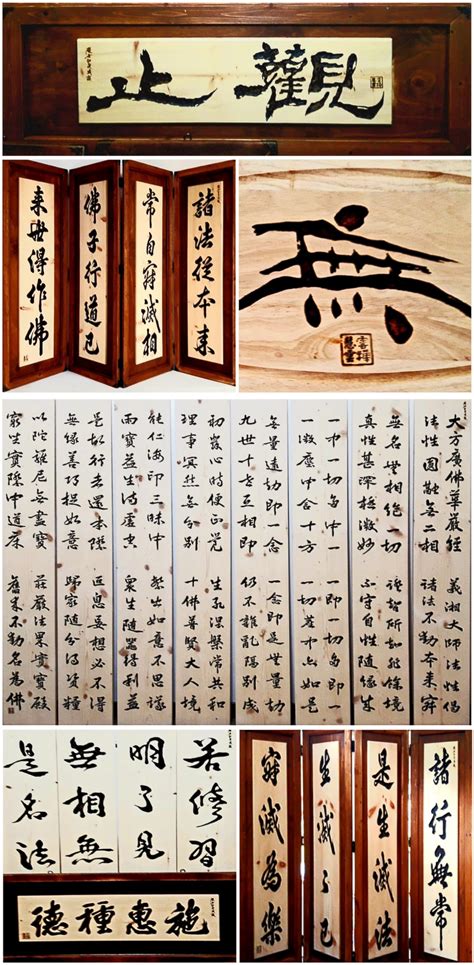 觀止
諸法從本來
常自寂滅相
佛子行道已
來世得作佛
無
大方廣佛華嚴經 義湘大師法性偈
法性圓融無二相 諸法不動本來寂
無名無相絕一切 證智所知非餘境
真性甚深極微妙 不守自性隨緣成
一中一切多中一 一即一切多即一
一微塵中含十方 一切塵中亦如是
無量遠劫即一念 一念即是無量劫
九世十世互相即 仍不雜亂隔別成
初發心時便正覺 生死涅槃常共和
理事冥然無分別 十佛普賢大人境
能仁海印三昧中 繁出如意不思議
雨寶益生滿虛空 眾生隨器得利益
是故行者還本際 叵息妄想必不得
無緣善巧捉如意 歸家隨分得資糧
以陀羅尼無盡寶 莊嚴法界實寶殿
窮坐實際中道床 舊來不動名為佛
若修習
明了見
無相無
是名法
施惠種德
諸行無常
是生滅法
生滅了已
寂滅為樂